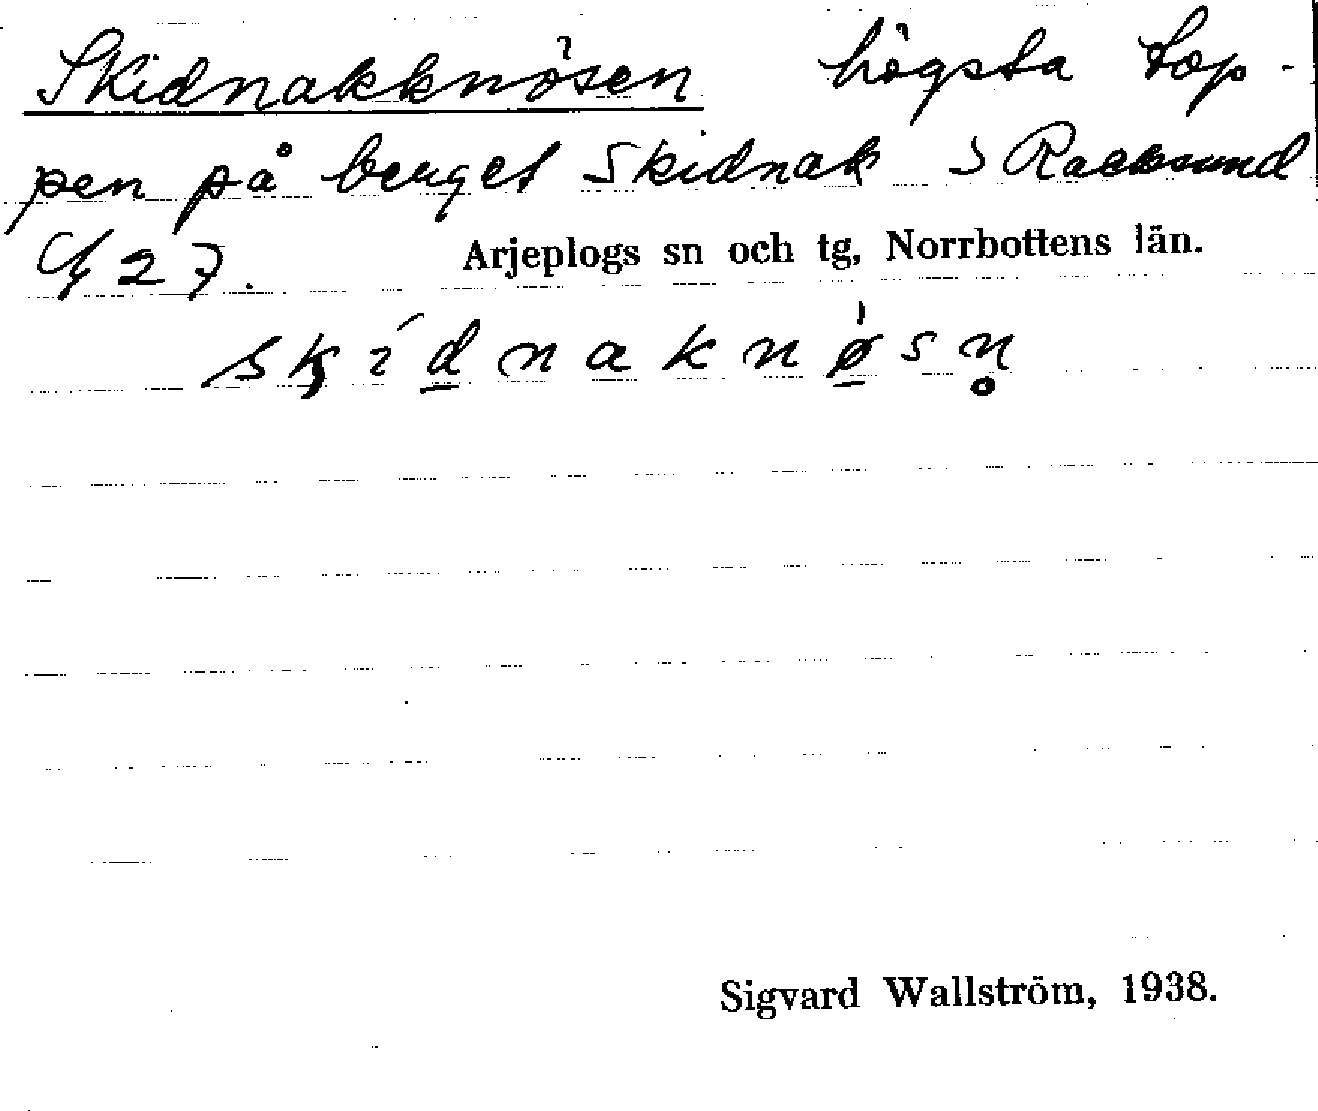 Skidnakknösen högsta top-
pen på berget Skidnak S Racksund
27. Arjeplogs sn och tg, Norrbottens län.
Sigvard Wallström, 1938.